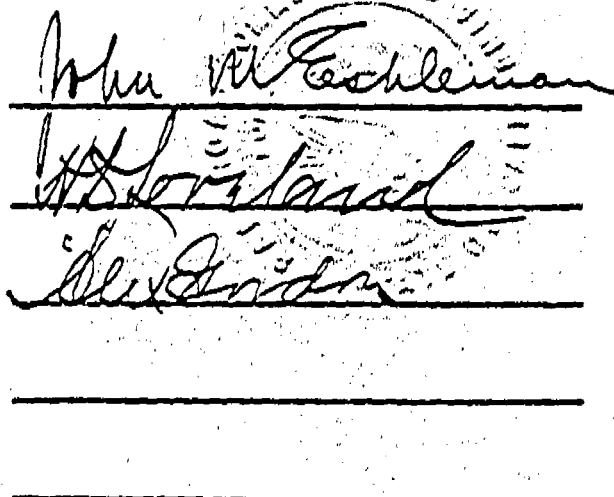 John M Eschleman
H D Loveland
Alex Gordon